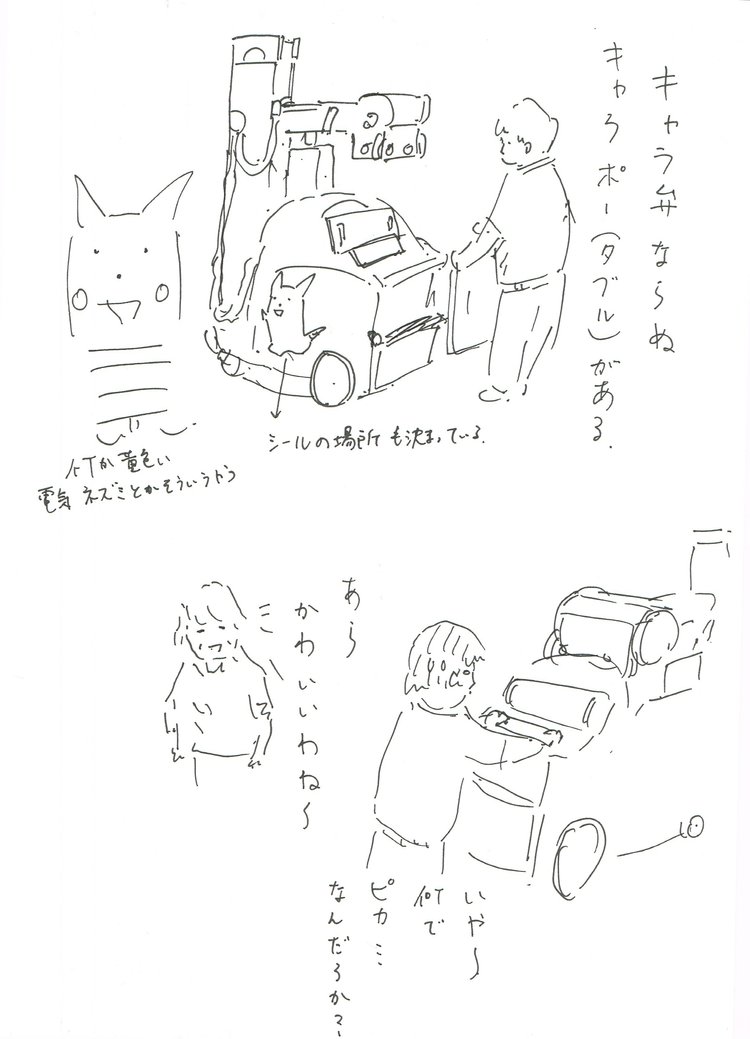 キャラ弁ならぬ
キャラポー(タブル)がある.
シールの場所も決まっている.
何か黄色い
電気ネズミとかそういうやつ
あら
かわいいわね〜
いや〜
何で
ピカ…
なんだろか?